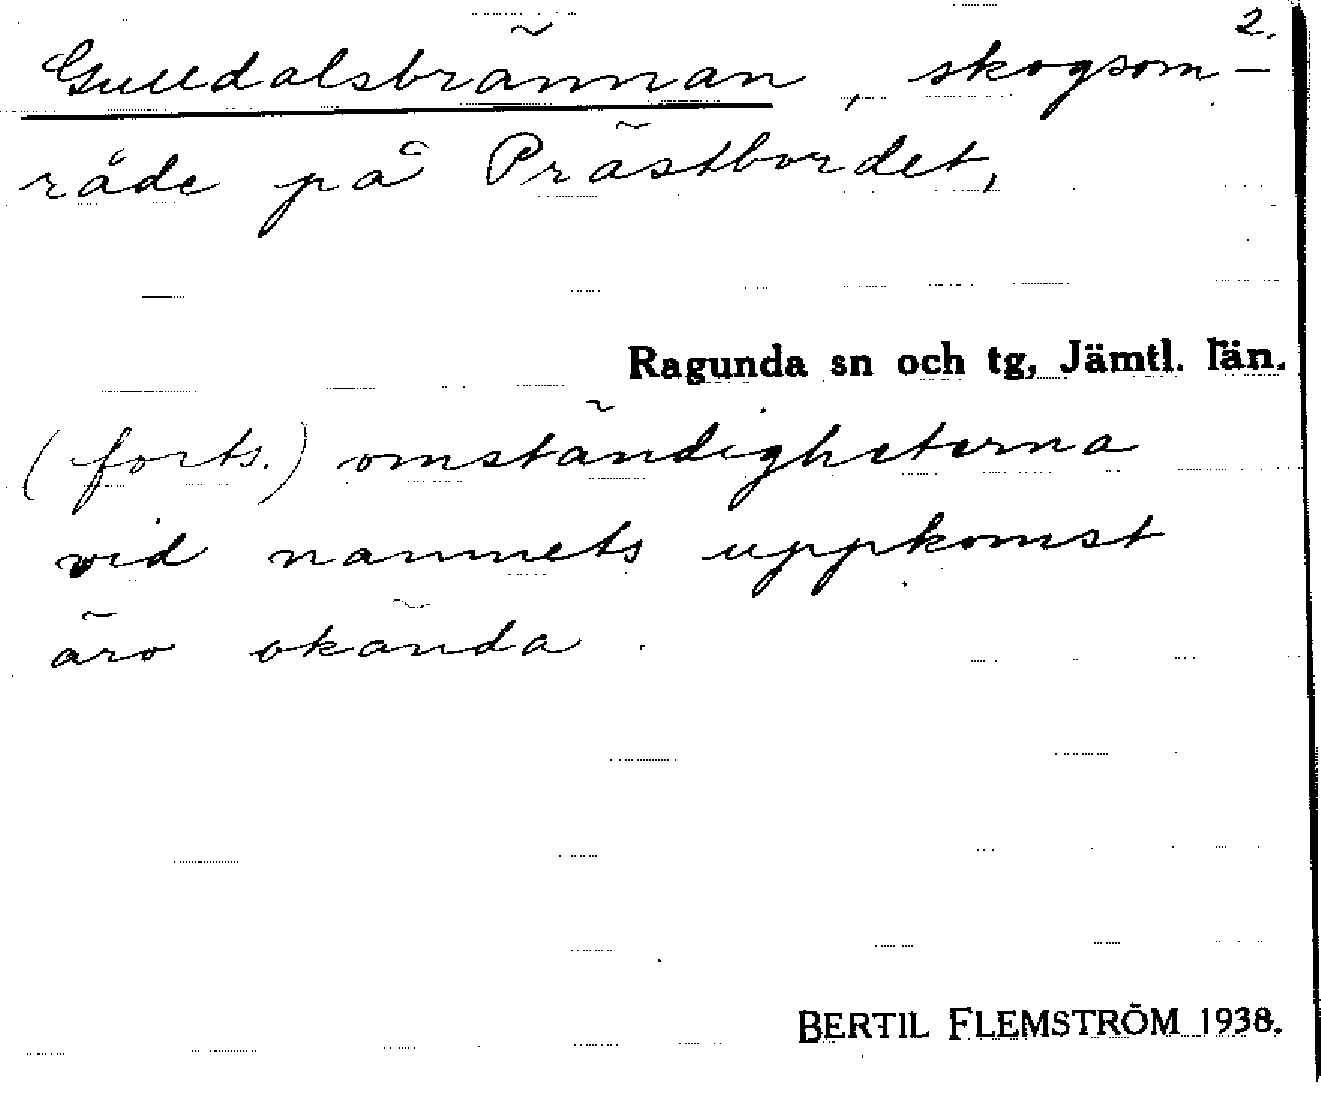 2.
Gulldalsbrännan, skogsom-
råde på Prästbordet,
Ragunda sn och tg, Jämtl. län.
(forts.) omständigheterna
vid namnets uppkomst
äro okända.
BERTIL FLEMSTRÖM 1938.